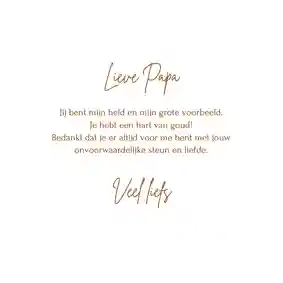 Lieve Papa
Jij bent mijn held en mijn grote voorbeeld.
Je hebt een hart van goud!
Bedankt dat je er altijd voor me bent met jouw
onvoorwaardelijke steun en liefde.
Veel liefs